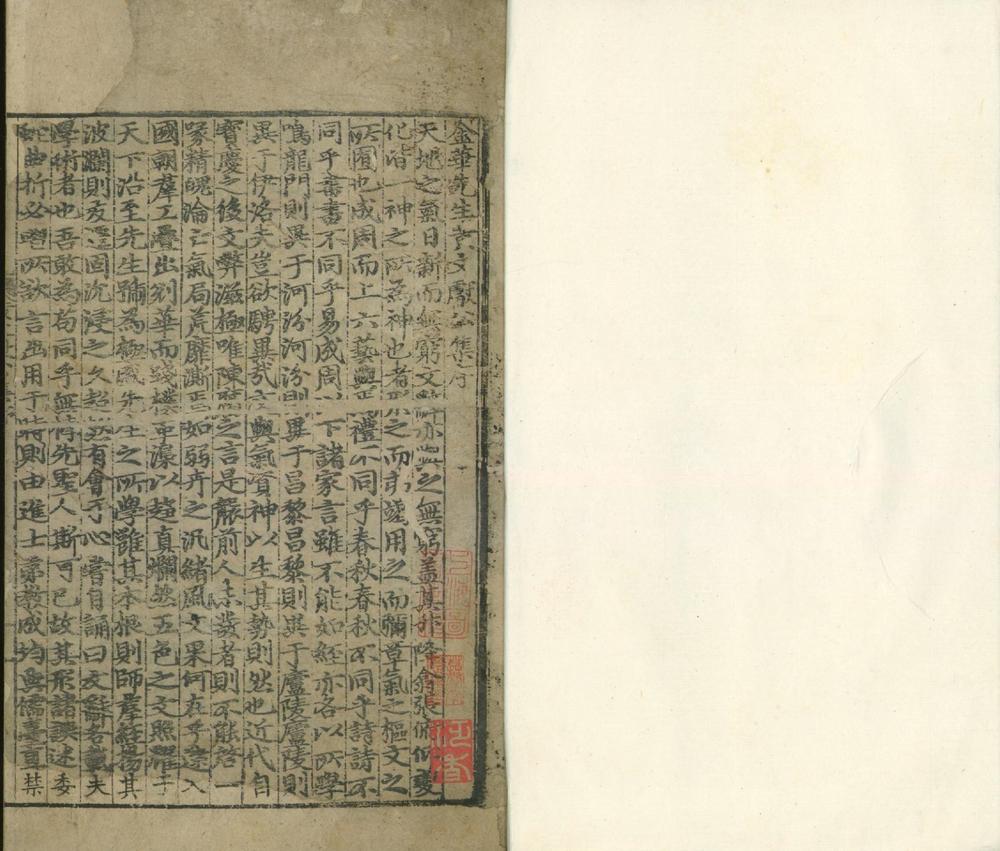 金華先生黃文獻公集序
天地之氣日新而無窮文辭亦與之無窮蓋其升降翕張俯仰變
化皆一神之所為神也者形之而弗竭用之而彌章氣之樞文之
所囿也成周而上六藝興焉禮不同乎春秋春秋不同乎詩詩不
同乎書書不同乎易成周以下諸家言雖不能如經亦各以所學
鳴龍門則異于河汾河汾則異于昌黎昌黎則異于廬陵廬陵則
異于伊洛夫豈欲騁異哉文與氣資神以生其勢則然也近代自
寶慶之後文弊滋極唯陳腐之言是襲前人未發者則不能啓一
喙精魄淪亡氣局荒靡澌焉如弱卉之汎緒風文果何在乎
國朝羣工疊出剗華而踐樸革漓以趨真爛然五色之文照耀于
天下沿至先生號為極盛先生之所學雖其本根則師羣經揚其
波瀾則友遷固沉浸之久超然有會于心嘗自誦曰文辭者載夫
學術者也吾敢為苟同乎無悖先聖人斯可已故其形諸譔述委
蛇曲折必暢所欲言出用于時則由進士教成均與儒臺直禁